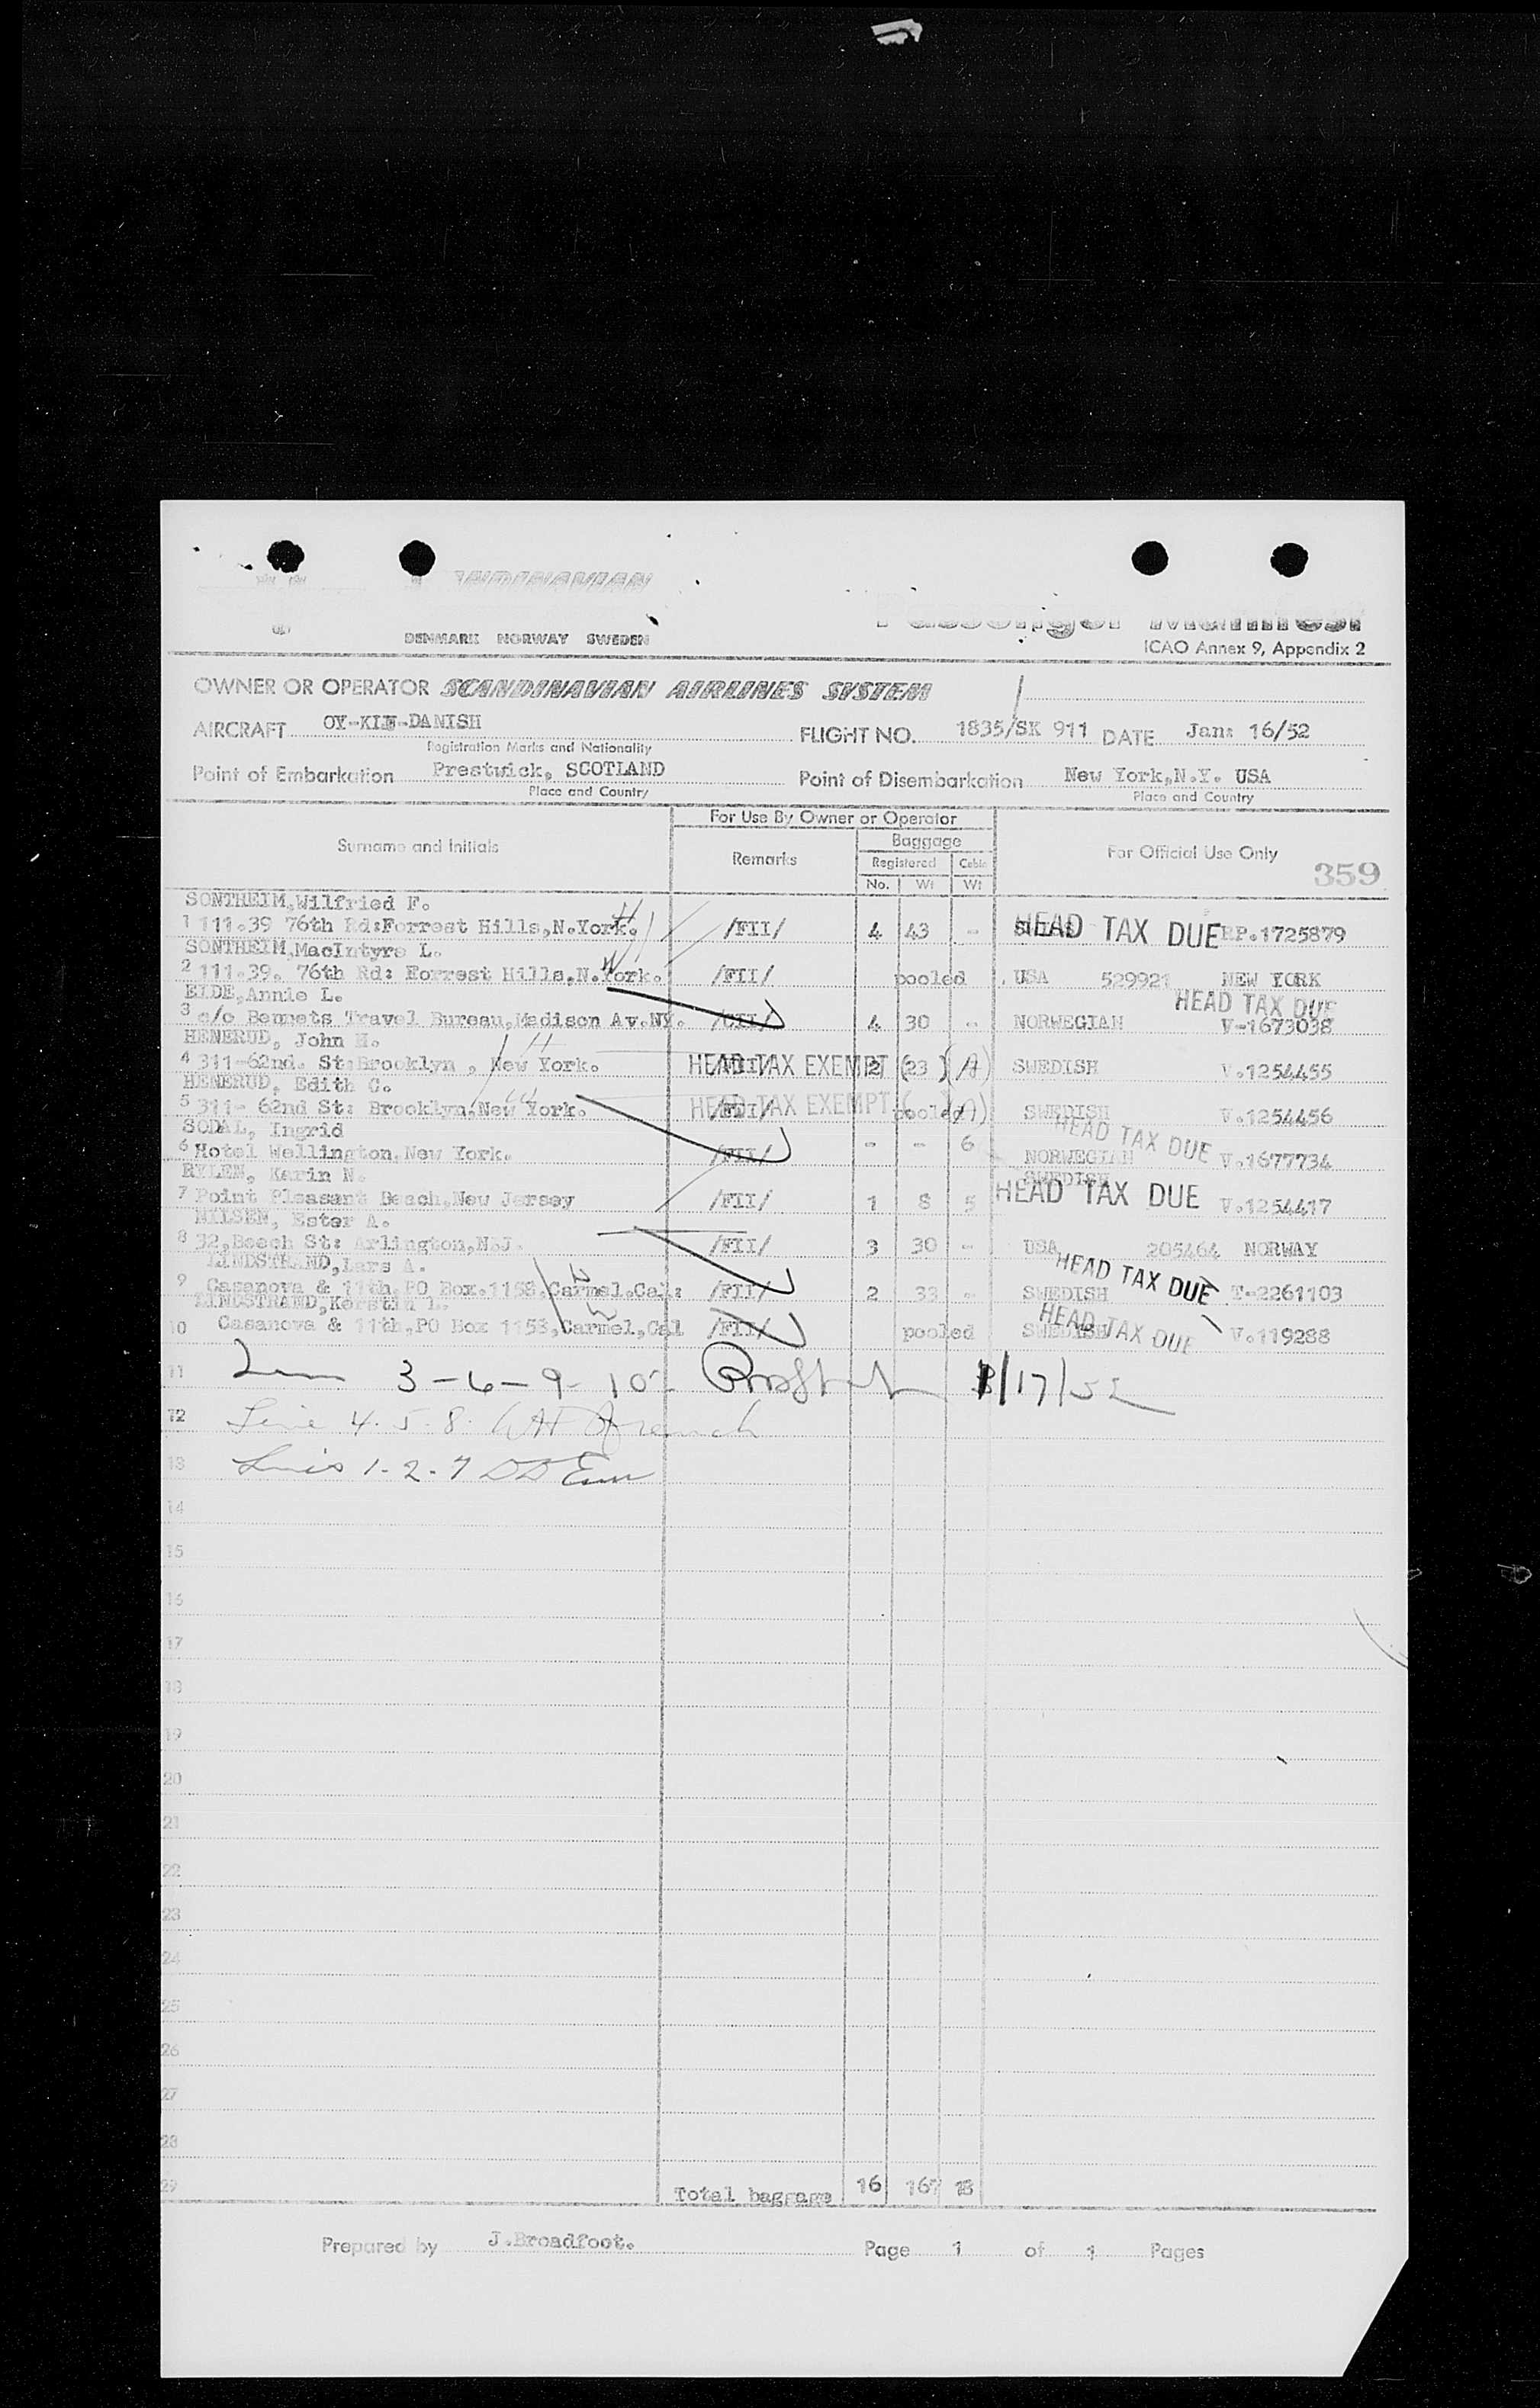 DENMARK NORWAY SWEDEN
Passenger Manifest
ICAO Annex 9, Appendix 2
OWNER OR OPERATOR SCANDINAVIAN AIRLINES SYSTEM
AIRCRAFT DANISH FLIGHT NO. 1835/SK 911 DATE Jan: 16/52
Registration Marks and Nationality
Point of Embarkation Prestwick, SCOTLAND Point of Disembarkation New York,N.Y. USA
Place and Country Place and Country
For Use By Owner or Operator
Surname and Initials Remarks Baggage For Official Use Only
Registered Cabin
No. Wt Wt
359
SONTHEIM,Wilfried F.
1 111.39 76th Rd:Forrest Hills,N.York. /FII/ 4 43 - HEAD TAX DUE RP.1725879
SONTHEIM,MacIntyre L.
2 111.39. 76th Rd: Forrest Hills,N.York. /FII/ pooled USA 529921 NEW YORK
EIDE,Annie L. HEAD TAX DUE
3 c/o Bennets Travel Bureau,Madison Av.NY. 4 30 - NORWEGIAN V-1673038
HENERUD, John H.
4 311-62nd. St:Brooklyn , New York. HEAD TAX EXEMPT 2 (23) (A) SWEDISH V.1254455
HENERUD, Edith C.
5 311- 62nd St: Brooklyn,New York. HEAD TAX EXEMPT pooled (A) SWEDISH V.1254456
SODAL, Ingrid HEAD TAX DUE
6 Hotel Wellington,New York. /FII/ - - 6 NORWEGIAN V.1677734
RYLEN, Karin N. SWEDISH
7 Point Pleasant Beach,New Jersey /FII/ 1 8 5 HEAD TAX DUE V.1254417
NILSEN, Ester A.
8 32,Beech St: Arlington,N.J. /FII/ 3 30 - USA 205464 NORWAY
LINDSTRAND,Lars A. HEAD TAX DUE
9 Casanova & 11th,PO Box.1158,Carmel.Cal: /FII/ 2 33 - SWEDISH T-2261103
LINDSTRAND,Kerstin L. HEAD TAX DUE
10 Casanova & 11th,PO Box 1158,Carmel,Cal /FII/ pooled SWEDISH V.119288
11 3-6-9-10 /17/52
12 Line 4.5.8.
13 Lines 1-2-7
14
15
16
17
18
19
20
21
22
23
24
25
26
27
28
29 Total baggage 16 167
Prepared by J.Broadfoot. Page 1 of 1 Pages